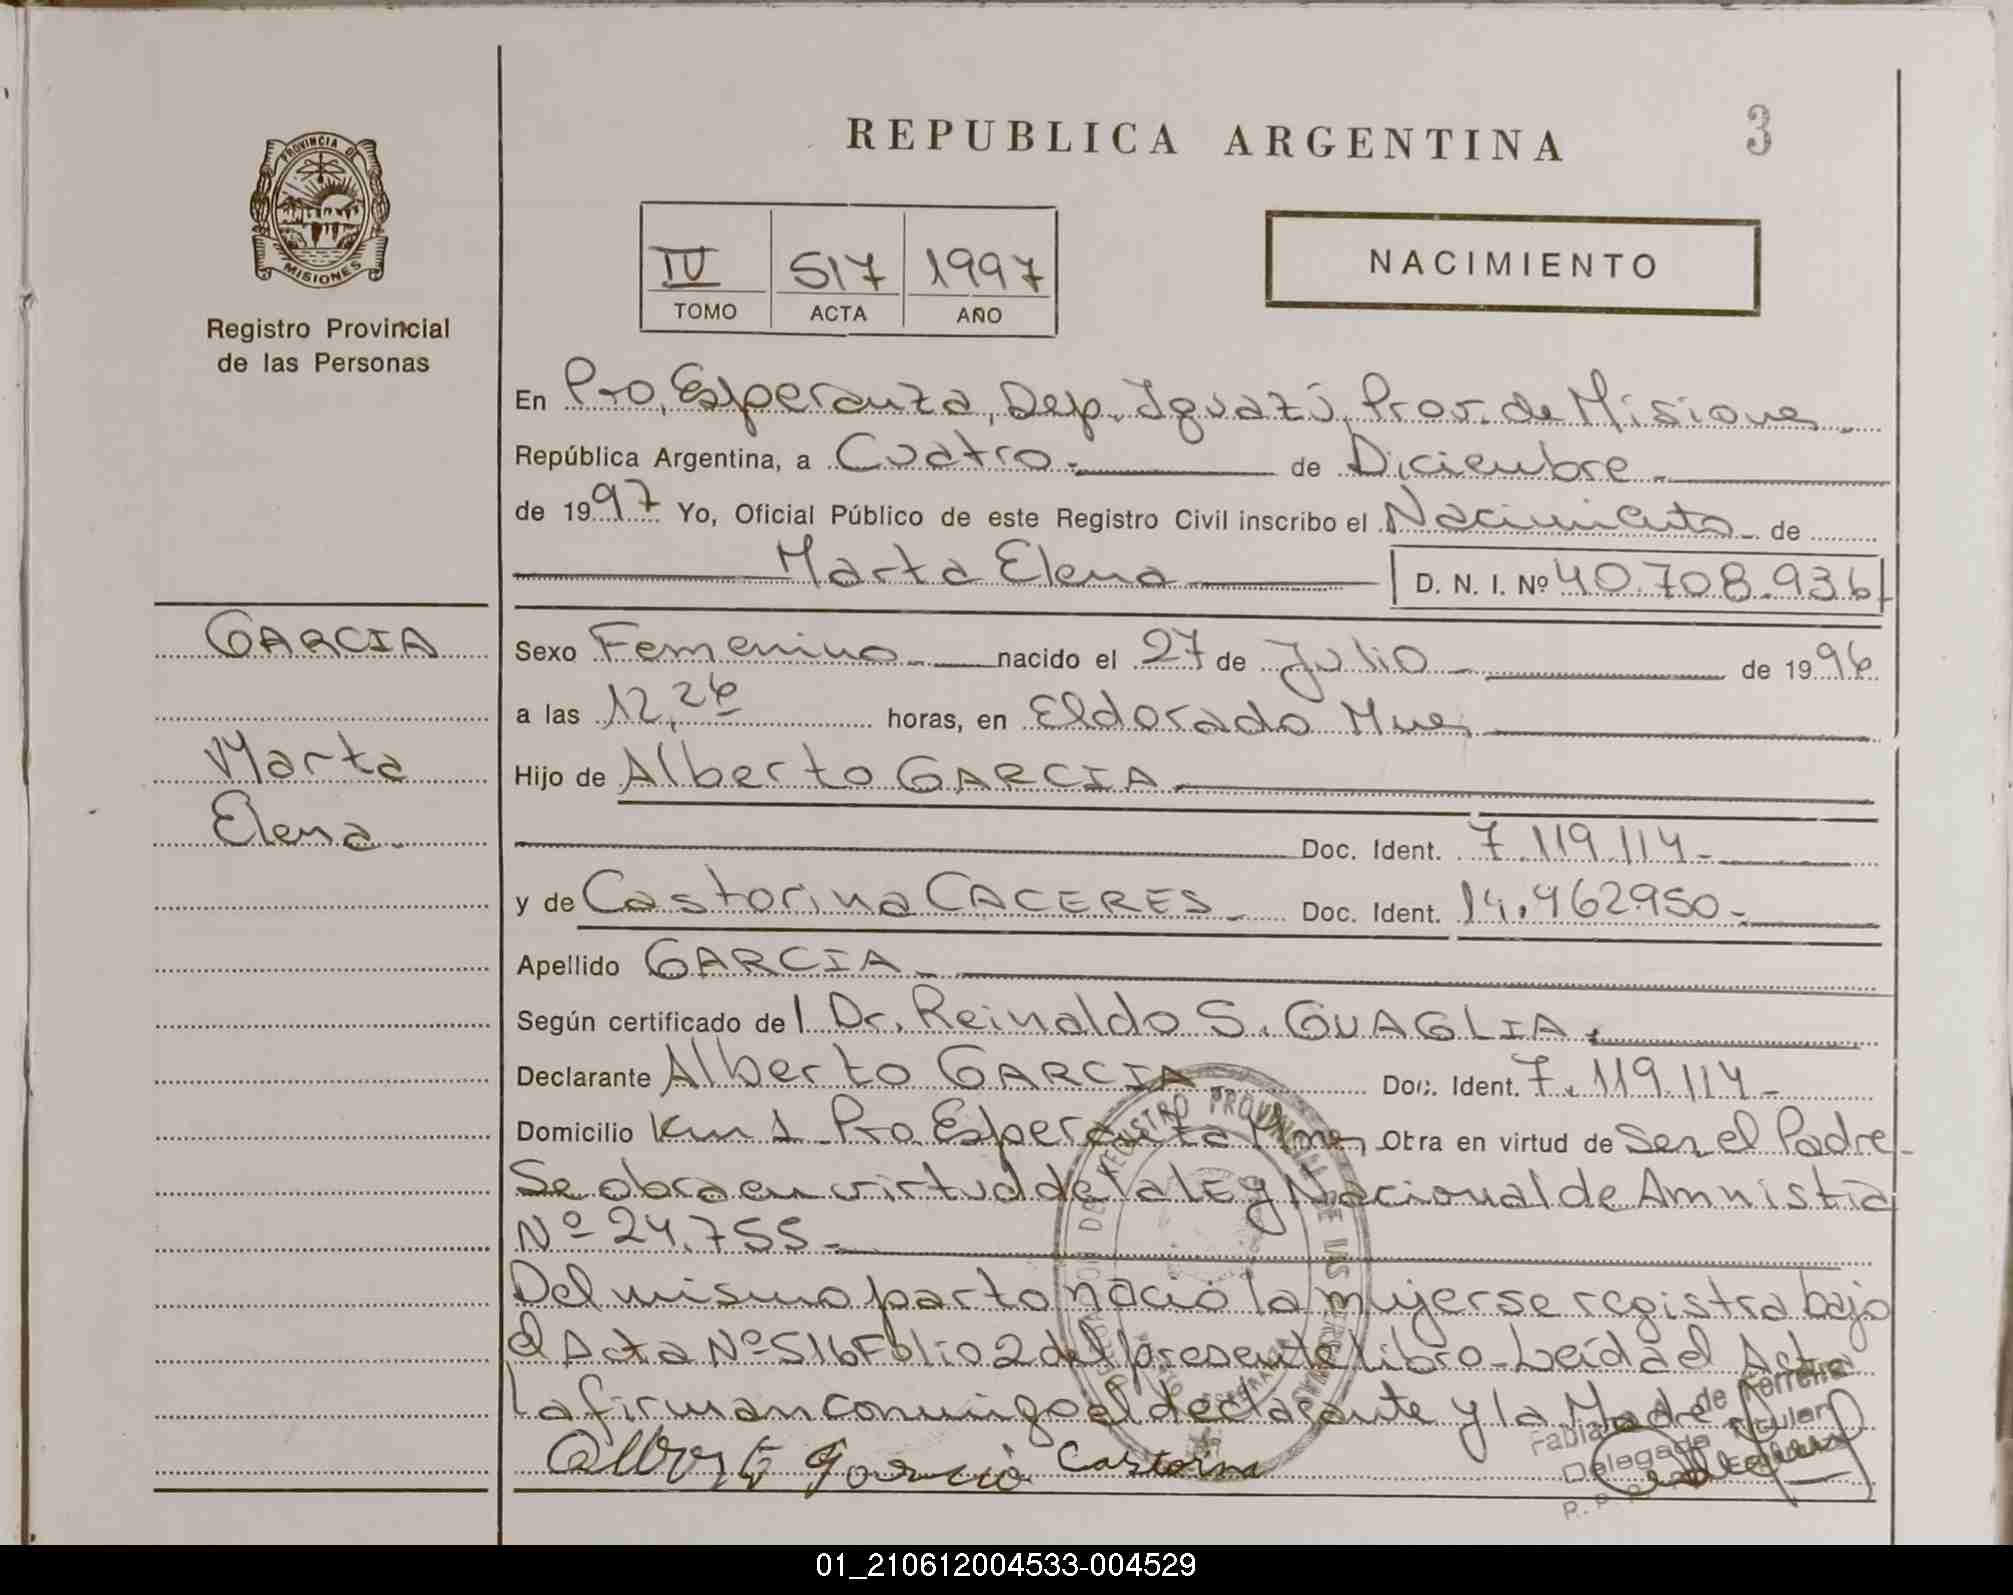 REPUBLICA ARGENTINA
3
PROVINCIA DE
MISIONES
Registro Provincial
de las Personas
IV 517 1997
TOMO ACTA AÑO
NACIMIENTO
En Pto. Esperanza, Dep. Iguazú, Prov. de Misiones
República Argentina, a Cuatro.- de Diciembre.-
de 1997 Yo, Oficial Público de este Registro Civil inscribo el Nacimiento de
Marta Elena D. N. I. Nº 40.708.936
GARCIA
Marta
Elena.
Sexo Femenino.- nacido el 27 de Julio - de 1996
a las 12,26 horas, en Eldorado Mnes,
Hijo de Alberto GARCIA
Doc. Ident. 7.119.114-
y de Castorina CACERES.- Doc. Ident. 14.462950.-
Apellido GARCIA.-
Según certificado del Dr. Reinaldo S. GUAGLIA.
Declarante Alberto GARCIA Doc. Ident. 7.119.114-
Domicilio Km 1 Pto. Esperanza Mnes, Obra en virtud de Ser el Padre-
Se obra en virtud de la Ley Nacional de Amnistia
Nº 24.755.-
Del mismo parto nació la mujer se registra bajo
el Acta Nº 516 Folio 2 del presente Libro - Leída el Acta
la firman conmigo el declarante y la Madre
Alberto Garcia Castorina
de Ferreira
Delegada Titular
REGISTRO PROVINCIAL DE LAS PERSONAS
01_210612004533-004529